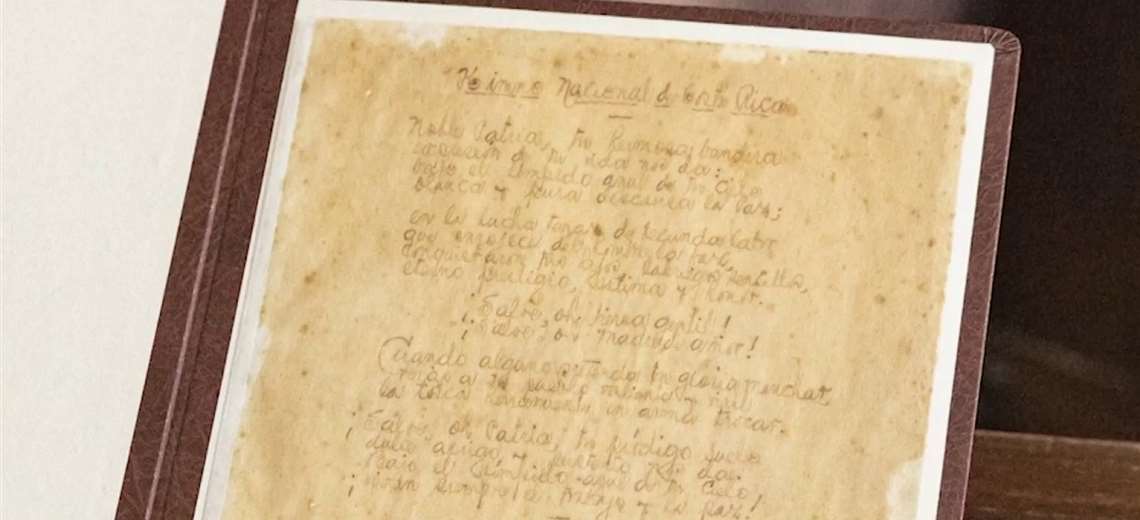 Himno Nacional de Costa Rica
Noble Patria, tu hermosa bandera
expresión de tu vida nos da:
bajo el límpido azul de tu cielo
blanca y pura descansa la Paz;
en la lucha tenaz de fecunda labor
que enrojece del hombre la faz,
conquistaron tus hijos, labriegos sencillos,
eterno prestigio, estima y honor.
¡Salve, oh tierra gentil!
¡Salve, oh madre de amor!
Cuando alguno pretenda tu gloria manchar,
verás a tu pueblo valiente y viril
la tosca herramienta en arma trocar.
¡Salve, oh Patria, tu pródigo suelo
dulce abrigo y sustento nos da.
Bajo el límpido azul de tu cielo
¡vivan siempre el trabajo y la paz!